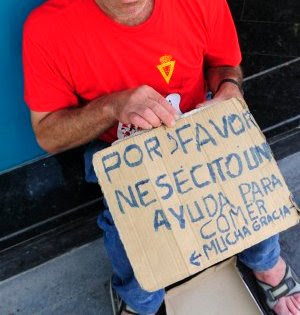 POR FAVOR
NESECITO UN
AYUDA PARA
COMER
←MUCHA GRACIA